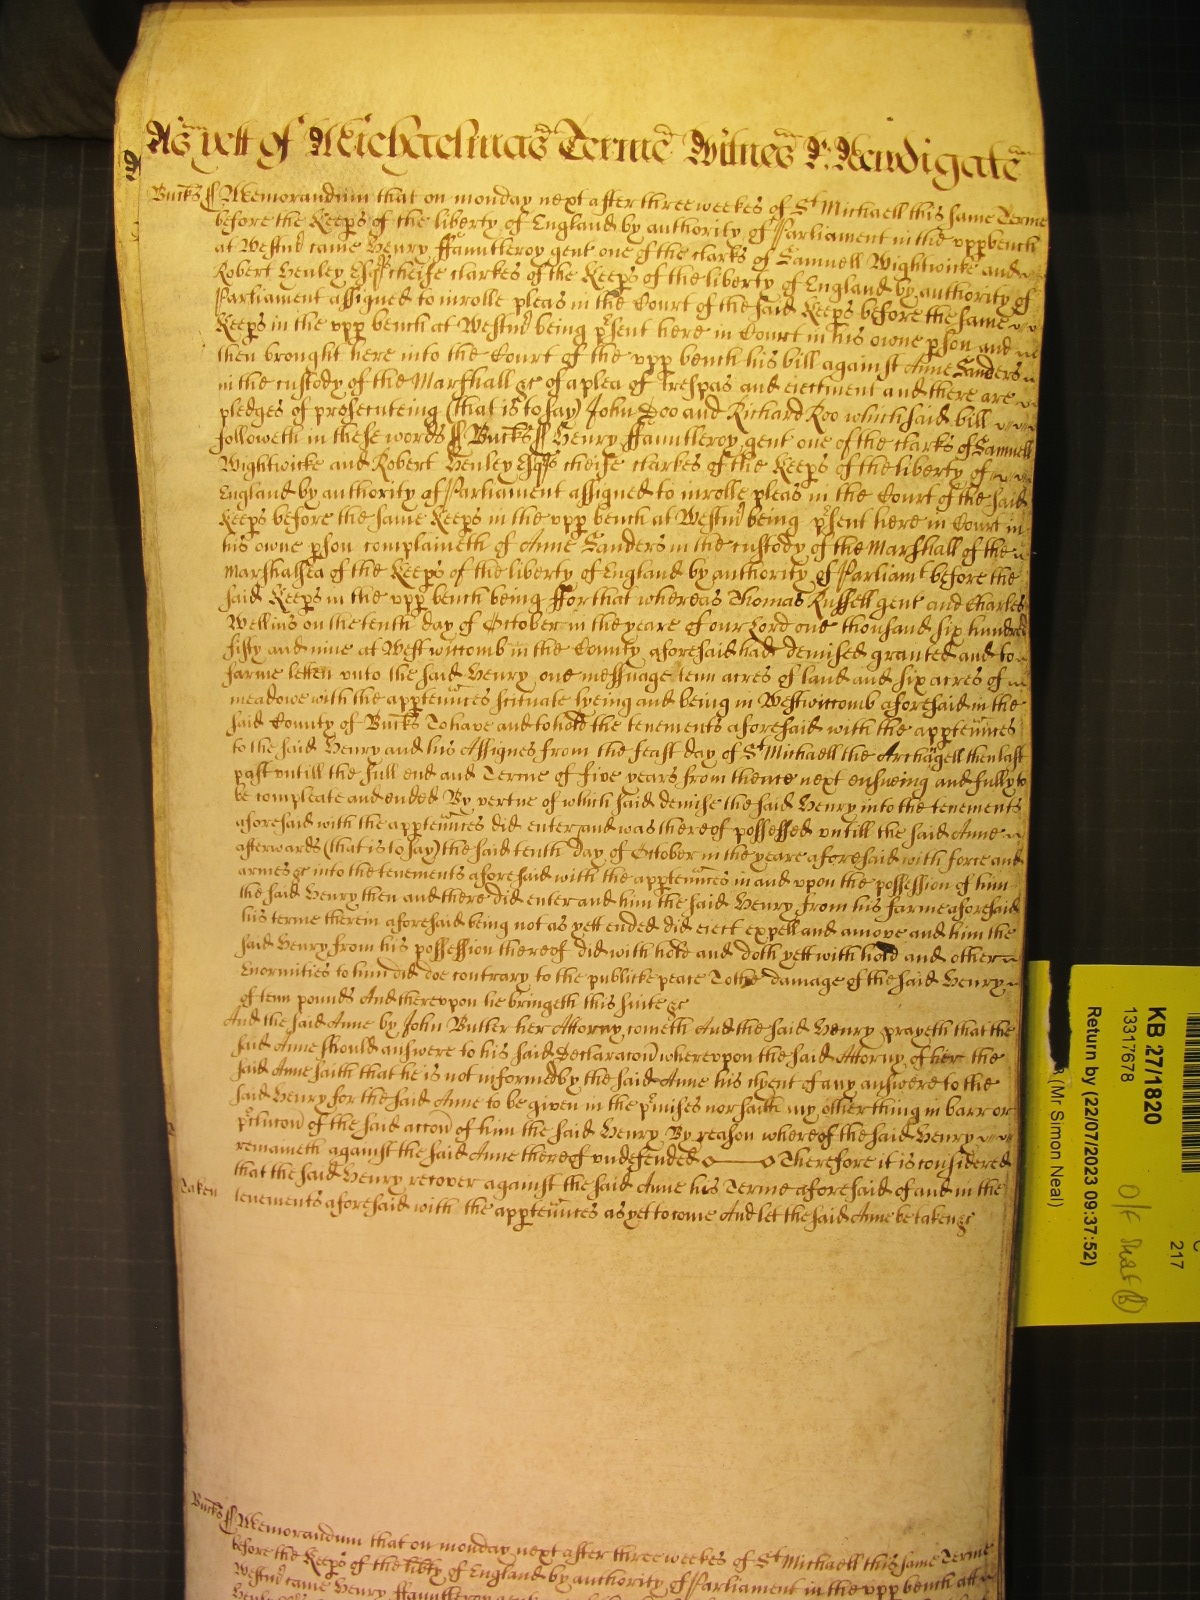 As yett of Michaelmas Terme Witnes R: Newdigate
Bucks ss Memorandum that on monday next after three weekes of St Michaell this same Terme
before the Keeps of the liberty of England by authority of Parliament in the upp bench
at Westmr came Henry ffauntleroy gent one of the clarks of Samuell Wightwicke and
Robert Henley Esqs cheife clarkes of the Keeps of the liberty of England by authority of
Parliament assigned to inrolle pleas in the Court of the said Keeps before the same
Keeps in the upp bench at Westmr being psent here in Court in his owne pson and
then brought here into the Court of the upp bench his bill against Anne Sanders
in the custody of the Marshall &c of a plea of trespas and eiectment and there are
pledges of prosecuteing (that is to say) John Doo and Richard Roo which said bill
followeth in these words ss Bucks ss Henry ffauntleroy gent one of the clarks of Samuell
Wightwicke and Robert Henley Esqs cheife clarkes of the Keeps of the liberty of
England by authority of Parliament assigned to inrolle pleas in the Court of the said
Keeps before the same Keeps in the upp bench at Westmr being psent here in Court in
his owne pson complaineth of Anne Sanders in the custody of the Marshall of the
Marshalsea of the Keeps of the liberty of England by authority of Parliamt before the
said Keeps in the upp bench being ffor that whereas Thomas Russell gent and Charles
Wellins on the tenth day of October in the yeare of our Lord one thousand six hundred
fifty and nine at West wittomb in the County aforesaid had demised granted and to
farme letten unto the said Henry one messuage tenn acres of land and six acres of
meadowe with the apptennces scituate lyeing and being in Westwittomb aforesaid in the
said County of Bucks To have and to hold the tenements aforesaid with the apptennces
to the said Henry and his Assignes from the feast day of St Michaell the Archangell then last
past untill the full end and Terme of five years from thence next ensueing and fully to
be compleate and ended By vertue of which said demise the said Henry into the tenements
aforesaid with the apptennces did enter and was thereof possessed untill the said Anne
afterwards (that is to say) the said tenth day of October in the yeare aforesaid with force and
armes &c into the tenements aforesaid with the apptennces in and upon the possession of him
the said Henry then and there did enter and him the said Henry from his farme aforesaid
his terme therein aforesaid being not as yett ended did eiect expell and amove and him the
said Henry from his possession thereof did with hold and doth yett with hold and other
Enormities to him did doe contrary to the publicke peace To the damage of the said Henry
of tenn pounds And thereupon he bringeth this suite &c
And the said Anne by John Butler her Attorny cometh And the said Henry prayeth that the
said Anne should answere to his said Declaracon whereupon the said Attorny of her the
said Anne saith that he is not informed by the said Anne his clyent of any answere to the
said Henry for the said Anne to be given in the pmises nor saith any other thing in barr or
pclucon of the said accon of him the said Henry By reason whereof the said Henry
remaineth against the said Anne thereof undefended Therefore it is considered
that the said Henry recover against the said Anne his Terme aforesaid of and in the
Taken tenements aforesaid with the apptennces as yet to come And let the said Anne be taken &c
Bucks ss Memorandum that on monday next after three weekes of St Michaell this same Terme
before the Keeps of the libty of England by authority of Parliament in the upp bench att
Westmr came Henry ffauntleroy gent one of the
KB 27/1820
13317678
Return by (22/07/2023 09:37:52)
(Mr Simon Neal)
217